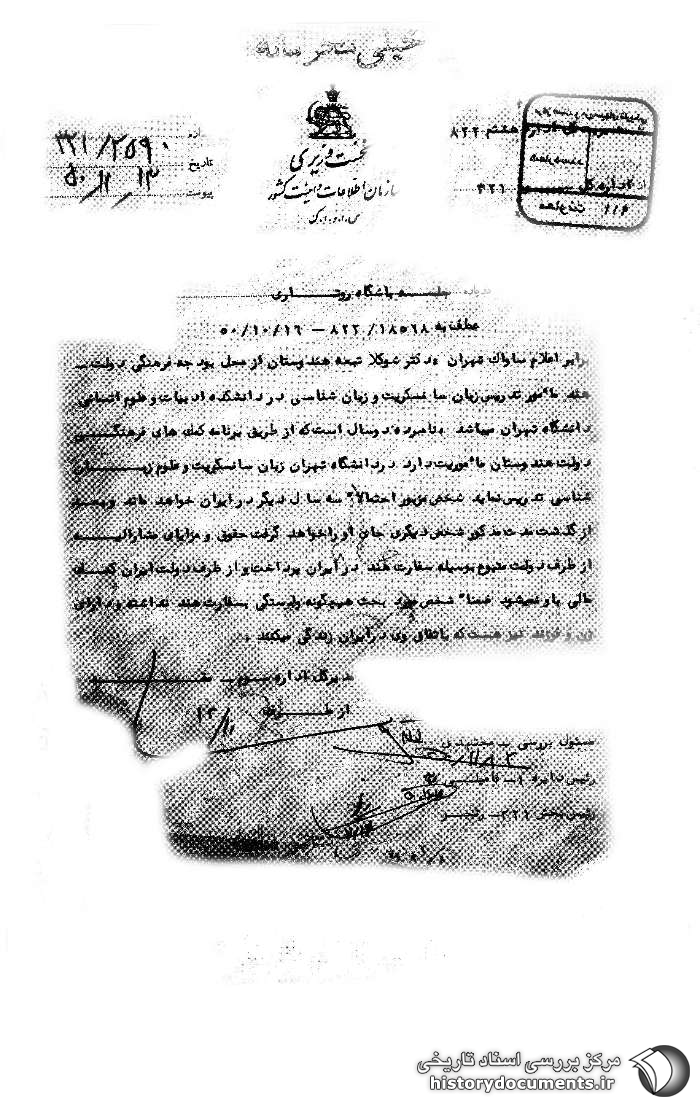 خیلی محرمانه
نخست وزیری
سازمان اطلاعات و امنیت کشور
س.ا.و.ا.ک
شماره ۳۲۱/۲۵۹۰
تاریخ ۵۰/۱۱/۱۳
پیوست
اداره هشتم ۸۲۲
۳۲۱
درباره جلسه باشگاه روتاری
عطف به ۸۲۲/۱۸۵۶۸ – ۵۰/۱۰/۱۶
برابر اعلام ساواک تهران دکتر شوکلا تبعه هندوستان از محل بودجه فرهنگی دولت
هند مأمور تدریس زبان سانسکریت و زبان شناسی در دانشکده ادبیات و علوم انسانی
دانشگاه تهران میباشد نامبرده دو سال است که از طریق برنامه کمک های فرهنگی
دولت هندوستان مأموریت دارد در دانشگاه تهران زبان سانسکریت و علوم زبان
شناسی تدریس نماید شخص مزبور احتمالاً سه سال دیگر در ایران خواهد ماند و پس
از گذشت مدت مذکور شخص دیگری جای او را خواهد گرفت حقوق و مزایای مشارالیه
از طرف دولت متبوع بوسیله سفارت هند در ایران پرداخت و از طرف دولت ایران کمک
مالی باو نمیشود ضمناً شخص مورد بحث هیچگونه وابستگی بسفارت هند نداشته و دارای
زن و فرزند نیز هست که باتفاق وی در ایران زندگی میکنند.
مدیرکل اداره سوم
از طرف
۱۱/۱۳
مسئول بررسی
رئیس دایره
رئیس بخش ۳۲۱
مرکز بررسی اسناد تاریخی
historydocuments.ir